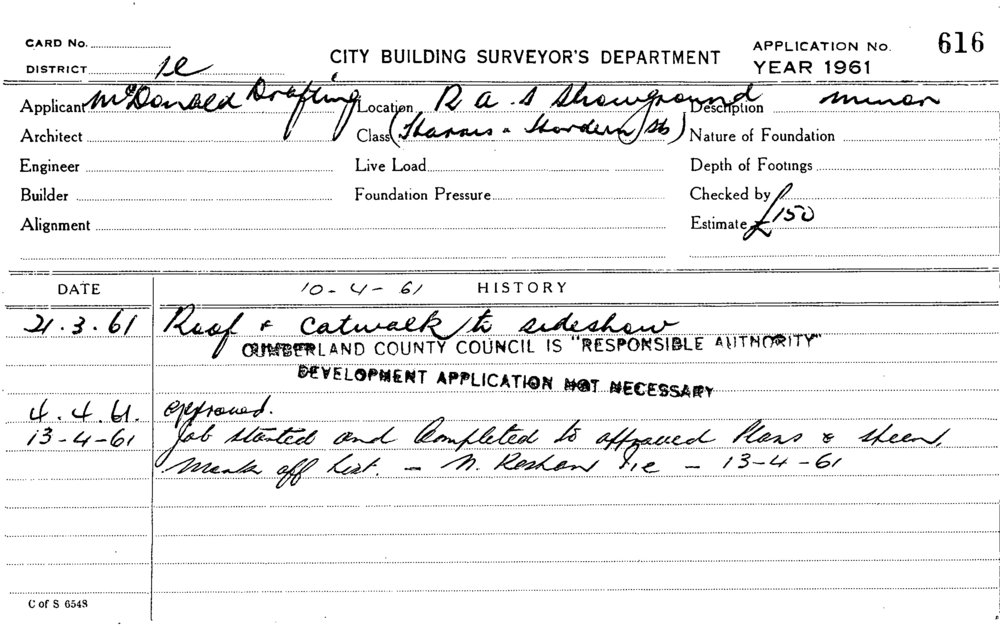 CARD No.
CITY BUILDING SURVEYOR'S DEPARTMENT
APPLICATION No. 616
DISTRICT
YEAR 1961
Applicant McDonald Drafting
Location R A S Showground
Description minor
Architect
Class
Nature of Foundation
Engineer
Live Load
Depth of Footings
Builder
Foundation Pressure
Checked by
Alignment
Estimate £150
DATE
10-4-61 HISTORY
21.3.61 Roof & catwalk to sideshow
CUMBERLAND COUNTY COUNCIL IS "RESPONSIBLE AUTHORITY"
DEVELOPMENT APPLICATION NOT NECESSARY
4.4.61. approved.
13-4-61 Job started and Completed to approved Plans &
Mark off list. - - 13-4-61
C of S 6548